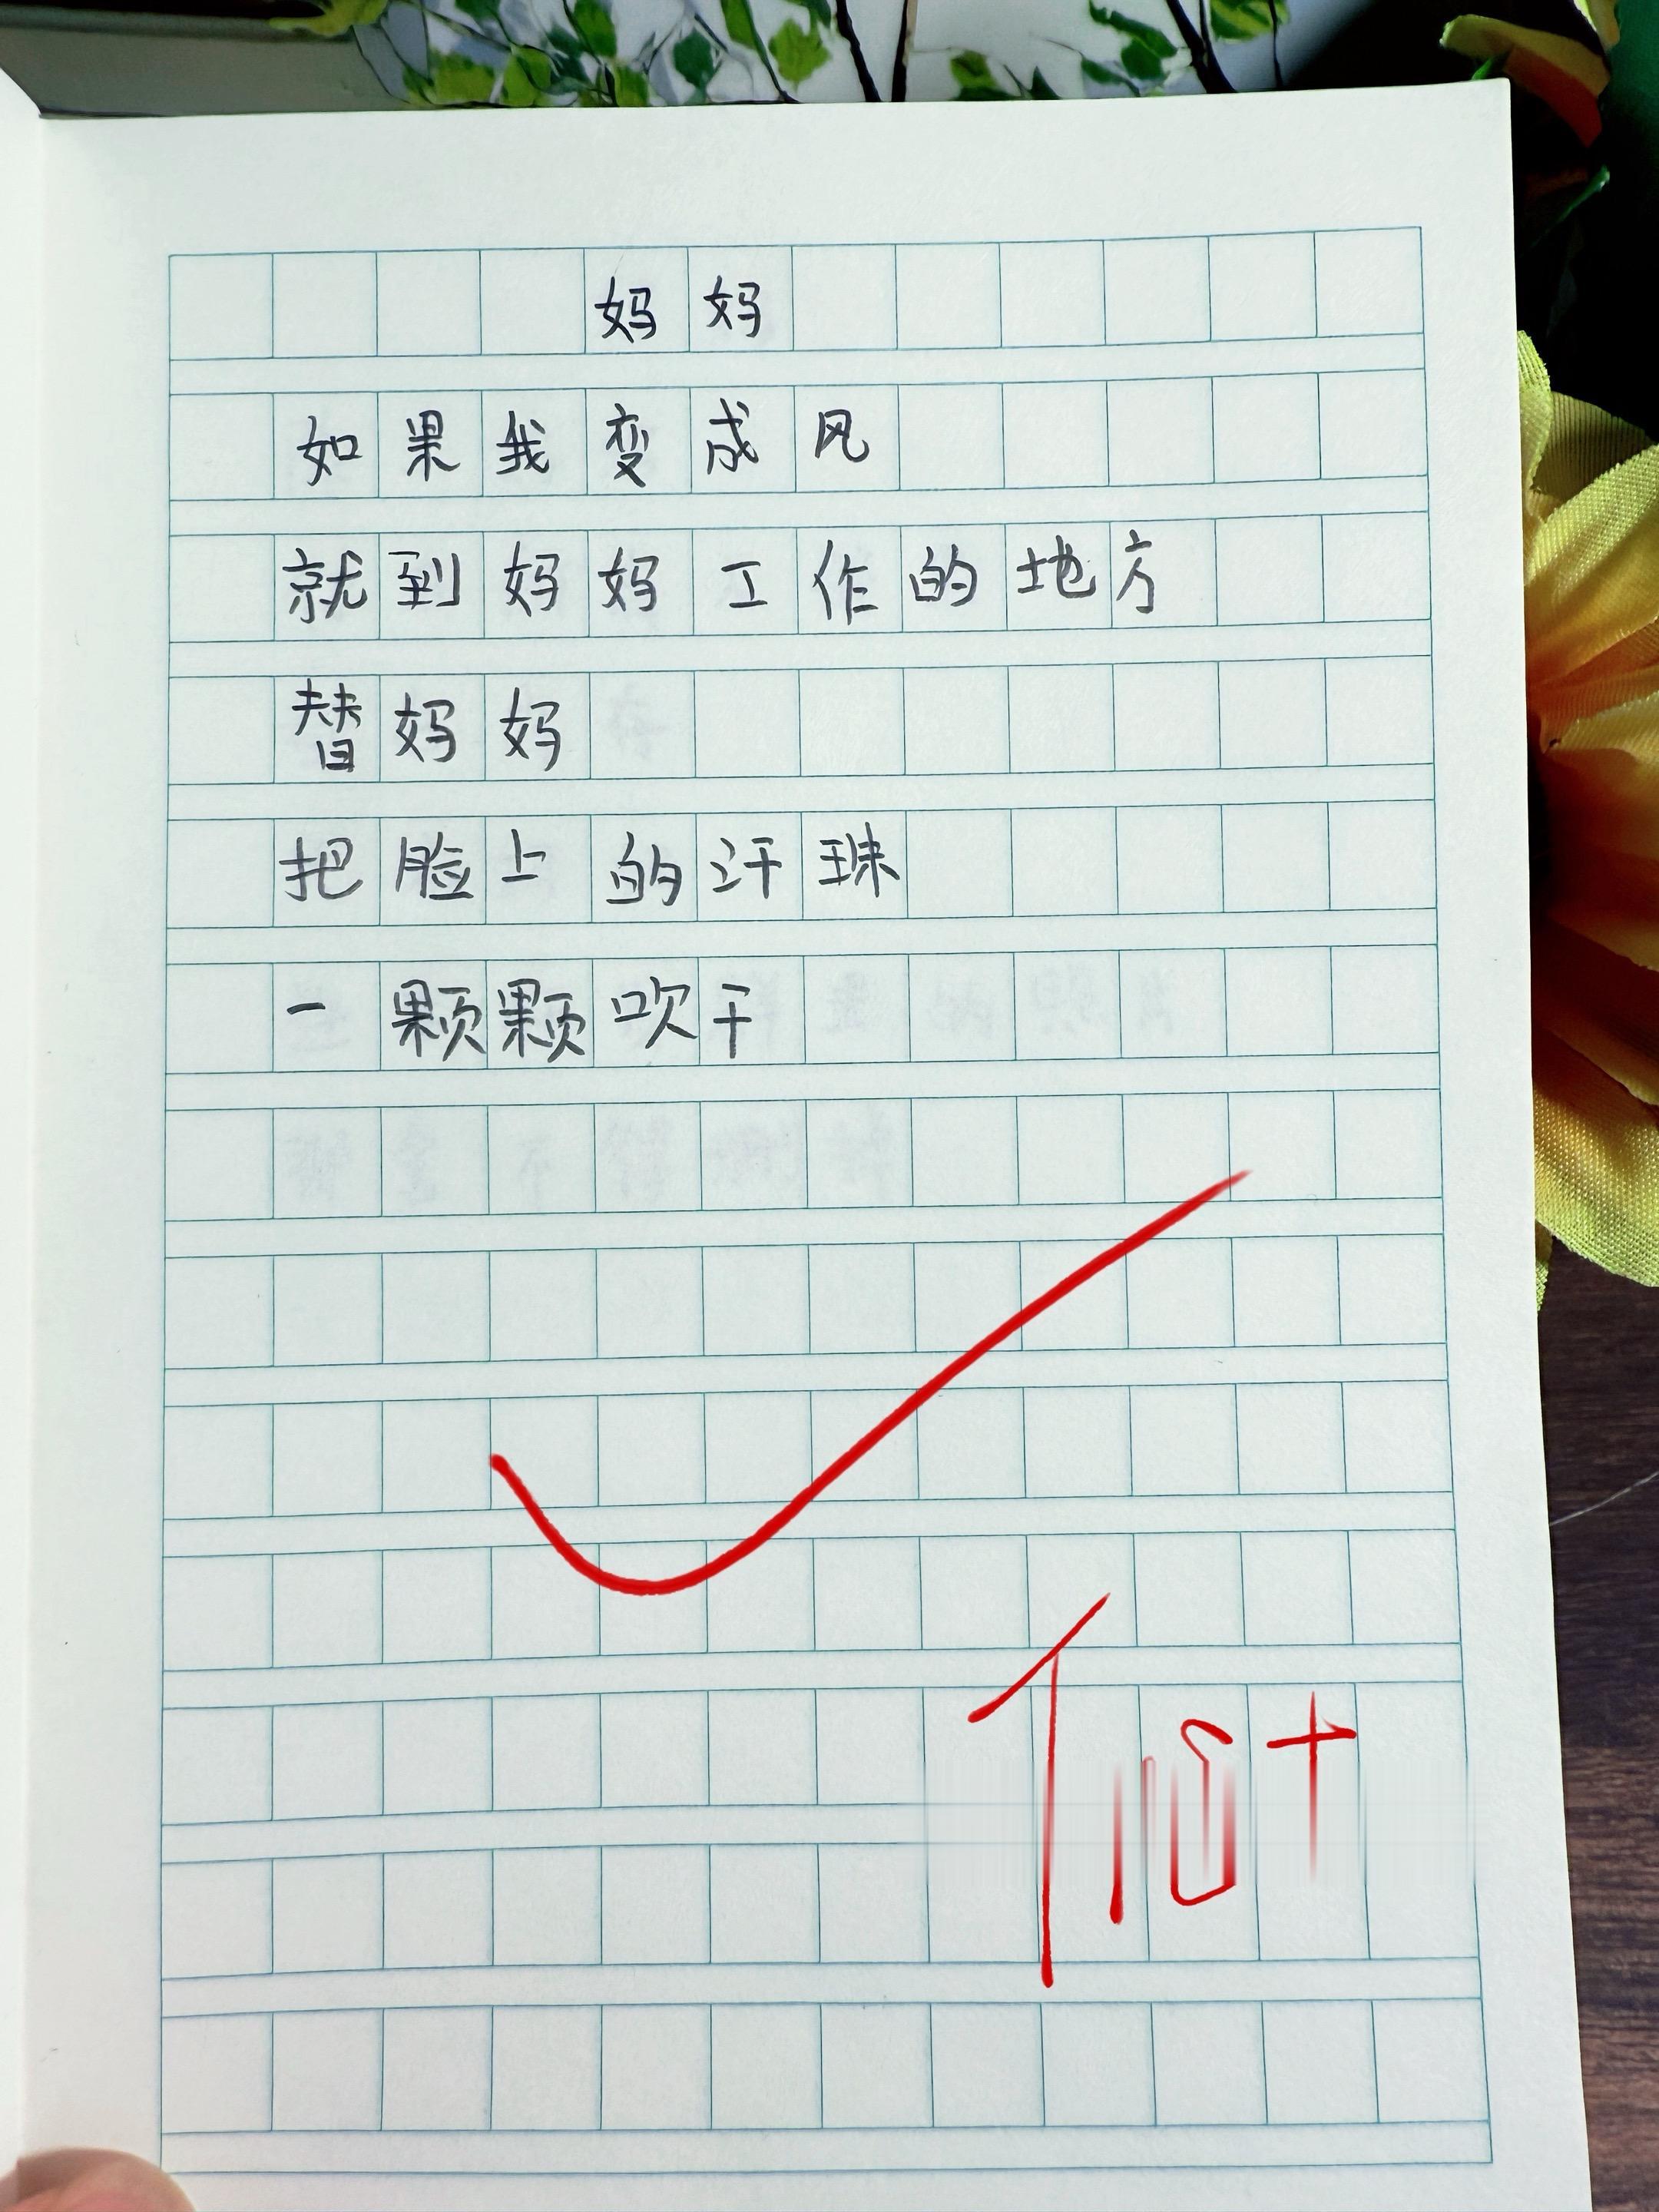 妈妈
如果我变成风
就到妈妈工作的地方
替妈妈
把脸上的汗珠
一颗颗吹干